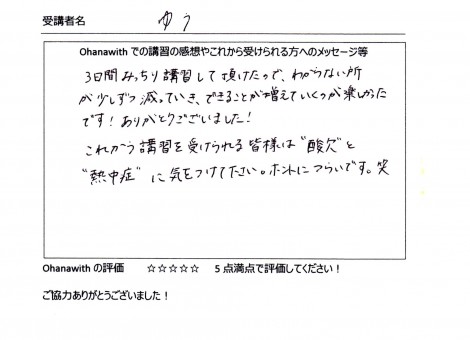 受講者名 ゆう
Ohanawith での講習の感想やこれから受けられる方へのメッセージ等
3日間みっちり講習して頂けたので、わからない所
が少しずつ減っていき、できることが増えていくのが楽しかった
です！ありがとうございました！
これから講習を受けられる皆様は"酸欠"と
"熱中症"に気をつけて下さい。ホントにつらいです。笑
Ohanawith の評価 ☆☆☆☆☆ 5 点満点で評価してください！
ご協力ありがとうございました！